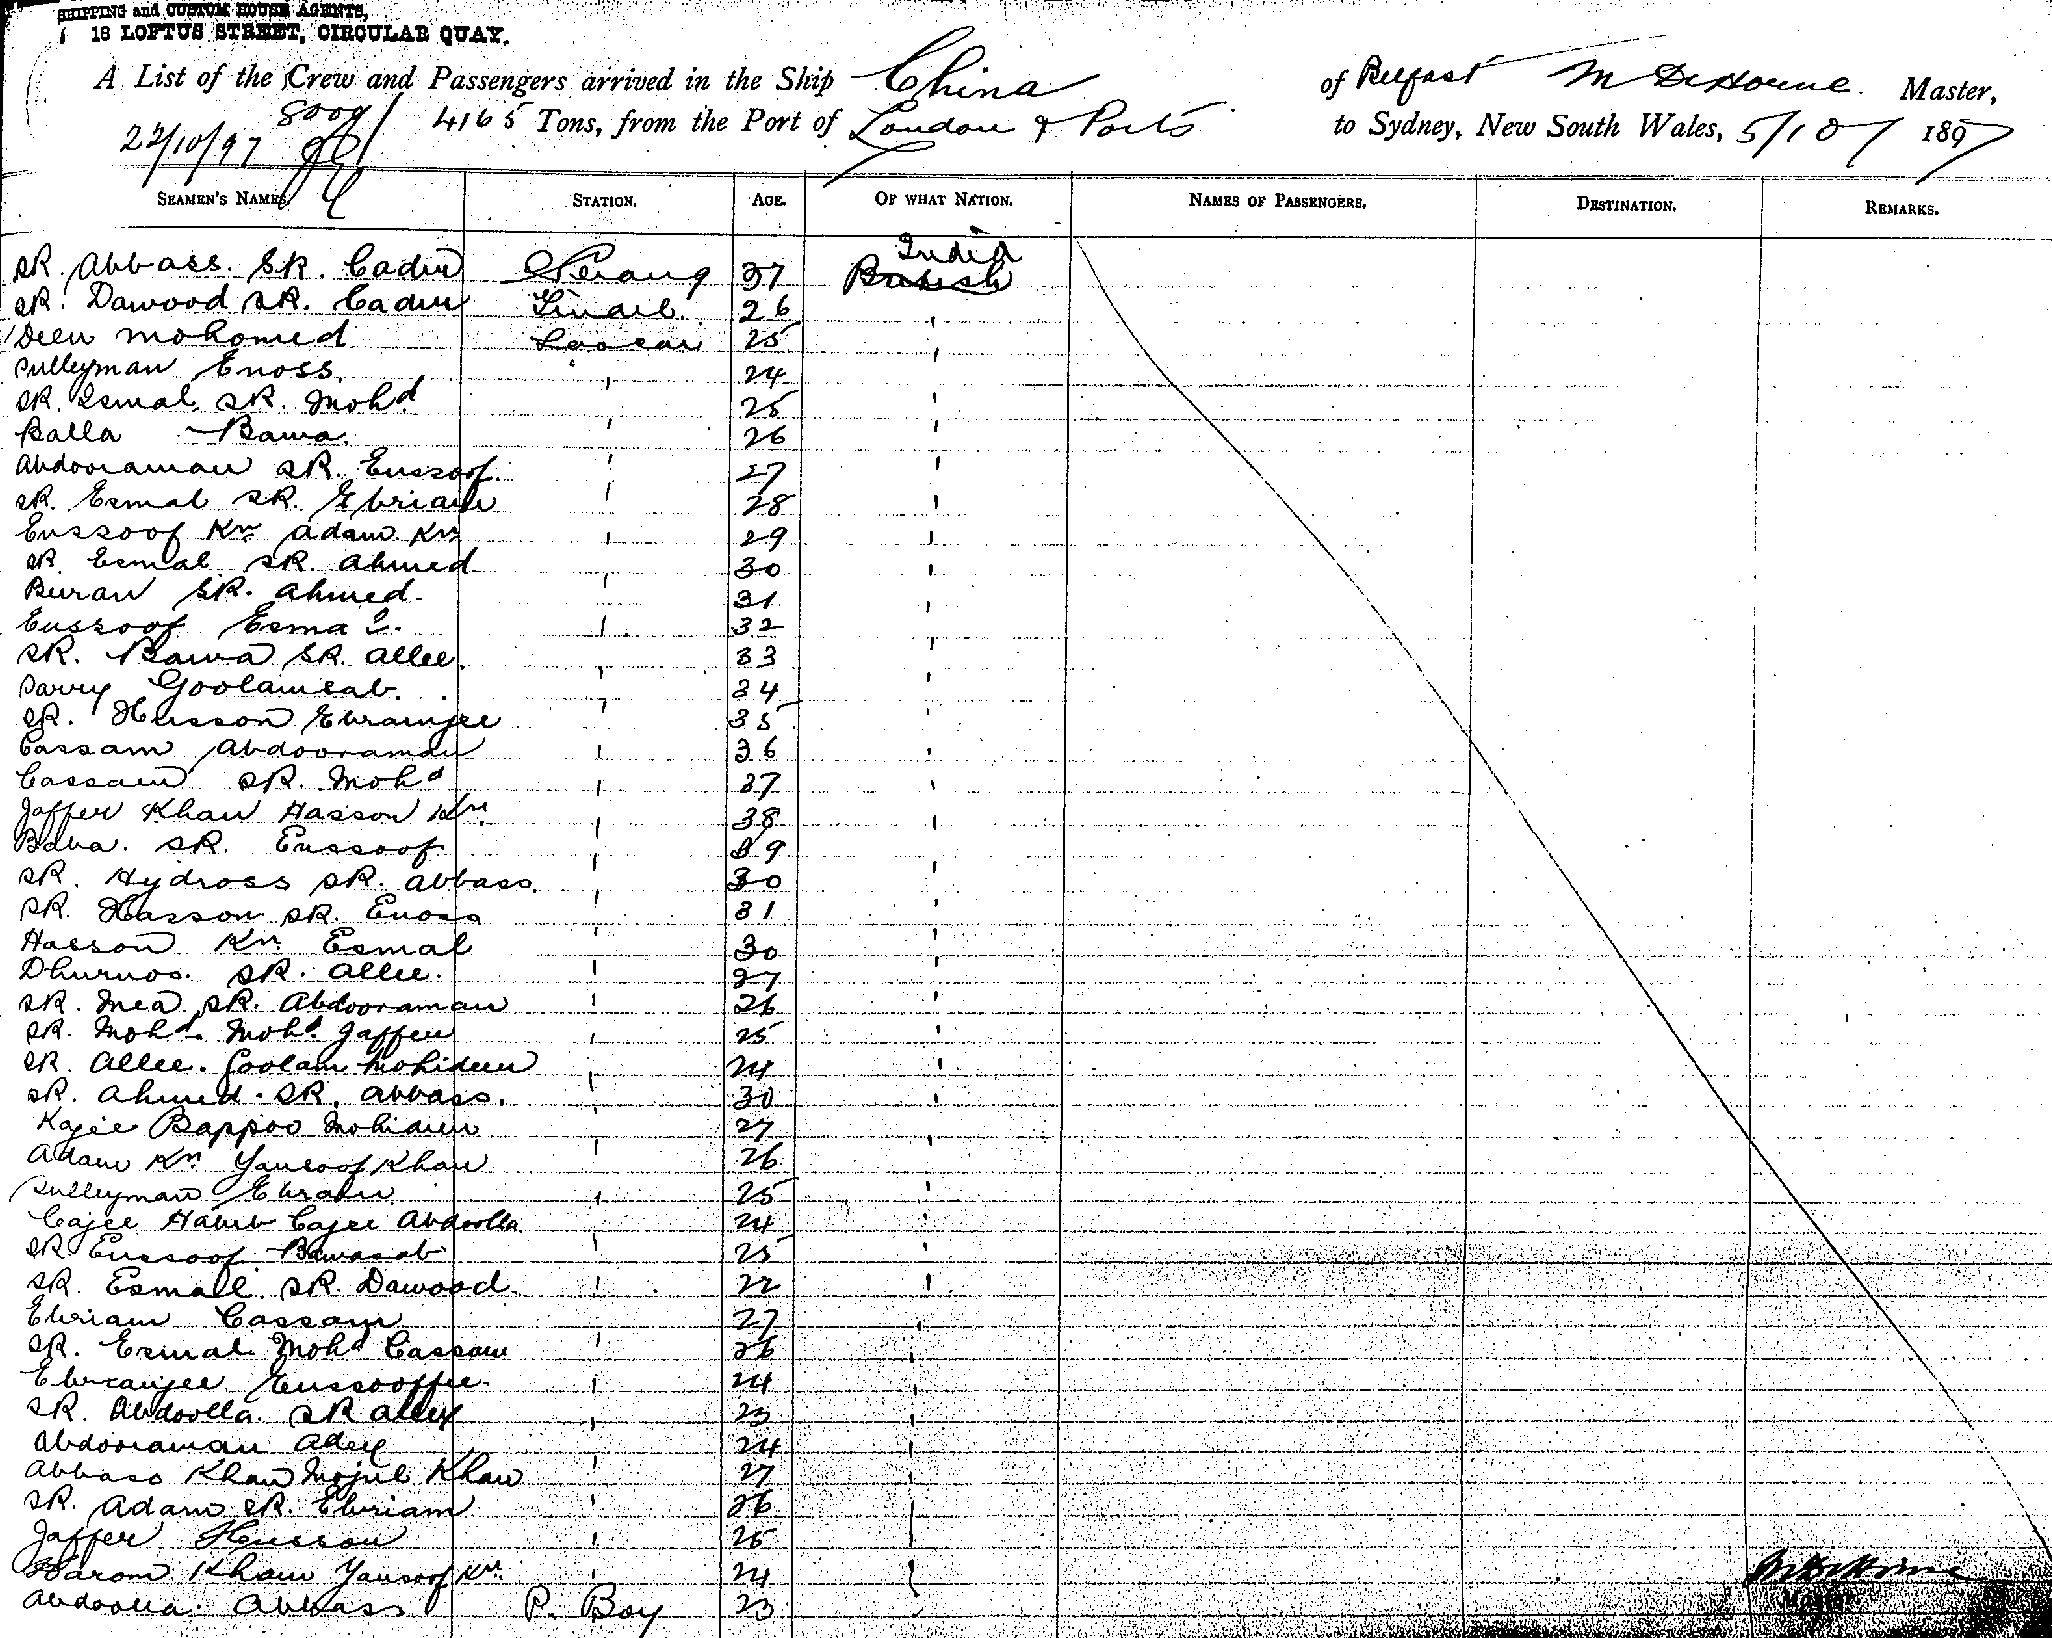 SHIPPING and CUSTOM HOUSE AGENTS,
18 LOFTUS STREET, CIRCULAR QUAY.
A List of the Crew and Passengers arrived in the Ship China of Belfast Master,
22/10/97 4165 Tons, from the Port of London & Ports to Sydney, New South Wales, 5/10/ 1897
SEAMEN'S NAMES, STATION. AGE. OF WHAT NATION. NAMES OF PASSENGERS, DESTINATION. REMARKS.
India
SK. Abbass. SK. Cadir 37 British
SK. Dawood SK. Cadir Tindel 26 "
Deen Mohomed Lascar 25 "
Sulleyman Enoss. " 24 "
SK. Esmal SK. Mohd " 25 "
Balla Bawa. " 26 "
Abdooraman SK. Eussoof. " 27 "
SK. Esmal SK. Ebriam " 28 "
Eussoof Kn Adam Kn " 29 "
SK. Esmal SK. Ahmed " 30 "
Buran SK. Ahmed. 31 "
Eussoof Esmal. " 32 "
SK. Bawa SK. Allee. " 33 "
Goolameab. " 34 "
SK. Husson Ebramjee " 35 "
Cassam Abdooraman " 36 "
Cassam SK. Mohd " 37 "
Jaffer Khan Hasson Kn. " 38 "
Bawa. SK. Eussoof " 39 "
SK. Hydross SK. Abbass. " 30 "
SK. Hasson SK. Enoss " 31 "
Hasson Kn. Esmal " 30 "
SK. Allee. " 27 "
SK. Mea SK. Abdooraman " 26 "
SK. Mohd. Mohd. Jaffer " 25 "
SK. Allee. Goolam Mohideen " 24 "
SK. Ahmed. SK. Abbass. " 30 "
Kajee Bappoo Mohideen " 27 "
Adam Kn Yousoof Khan " 26 "
Sulleyman Ebraim " 25 "
Cajee Habib Cajee Abdoolla " 24 "
SK Eussoof Bawasab " 25 "
SK. Esmall SK. Dawood. " 22 "
Ebriam Cassam " 27 "
SK. Esmal Mohd Cassam " 26 "
Ebramjee Eussooffjee. " 24 "
SK. Abdoolla. SK Alley " 23 "
Abdooraman " 24 "
Abbass Khan Khan " 27 "
SK. Adam SK. Ebriam " 26 "
Jaffer Husson " 25 "
Harom Khan Yousoof Kn. " 24 "
Abdoolla. Abbass P. Boy 23 "
Master